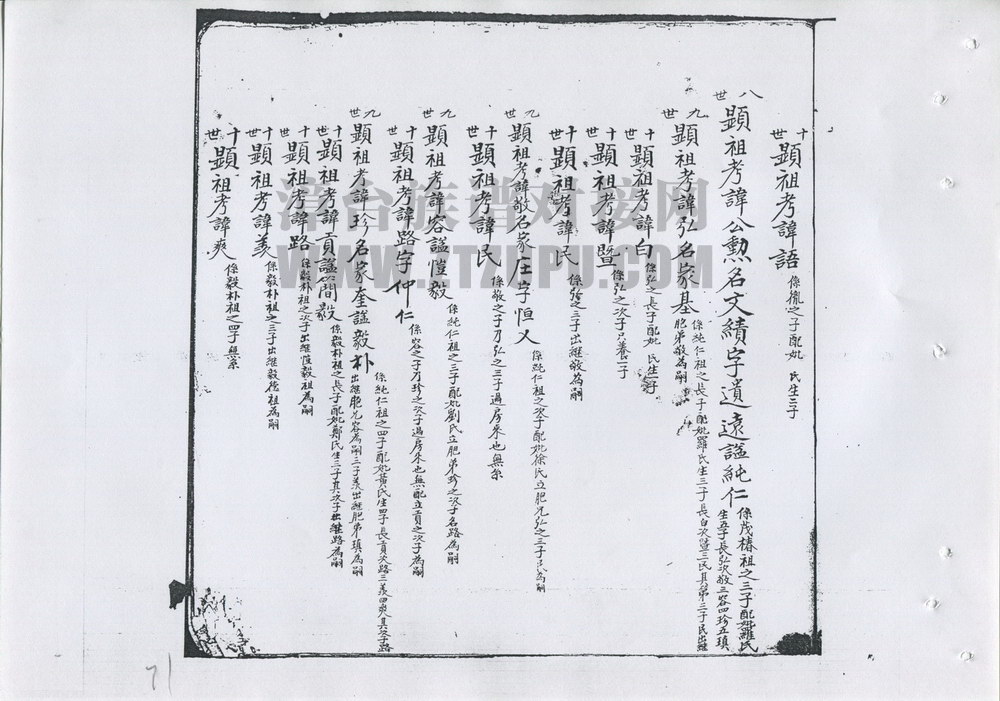 十世
顕祖考諱語
係胤之子配妣 氏生三子
八世
顕祖考諱公勲名文績字遺遠謚純仁
係茂椿祖之三子配妣羅氏
生五子長弘次敬三容四珍五瑱
九世
顕祖考諱弘名家基
係純仁祖之長子配妣羅氏生三子長白次暨三民其第三子民出繼
胞弟敬為嗣
十世
顕祖考諱白
係弘之長子配妣 氏生 子
十世
顕祖考諱暨
係弘之次子只養二子
十世
顕祖考諱民
係 之三子出継敬為嗣
九世
顕祖考諱敬名家庄字恒义
係純仁祖之次子配妣徐氏立胞兄弘之三子民為嗣
十世
顕祖考諱民
係敬之子乃弘之三子過房來也無系
九世
顕祖考諱容謚愷毅
係純仁祖之三子配妣劉氏立胞弟珍之次子名路為嗣
十世
顕祖考諱路字仲仁
係容之子乃珍之次子過房來也無配立貢之次子為嗣
九世
顕祖考諱珍名家奎謚毅朴
係純仁祖之四子配妣黄氏生四子長貢次路三羨四爽其次子路
出継胞兄容為嗣三子羨出継胞弟瑱為嗣
十世
顕祖考諱貢謚簡毅
係毅朴祖之長子配妣鄭氏生三子其次子出継路為嗣
十世
顕祖考諱路
係毅朴祖之次子出継愷毅祖為嗣
十世
顕祖考諱羨
係毅朴祖之三子出継毅 祖為嗣
十世
顕祖考諱爽
係毅朴祖之四子無系
漳台族谱对接网
WWW.ZTZUPU.COM
71